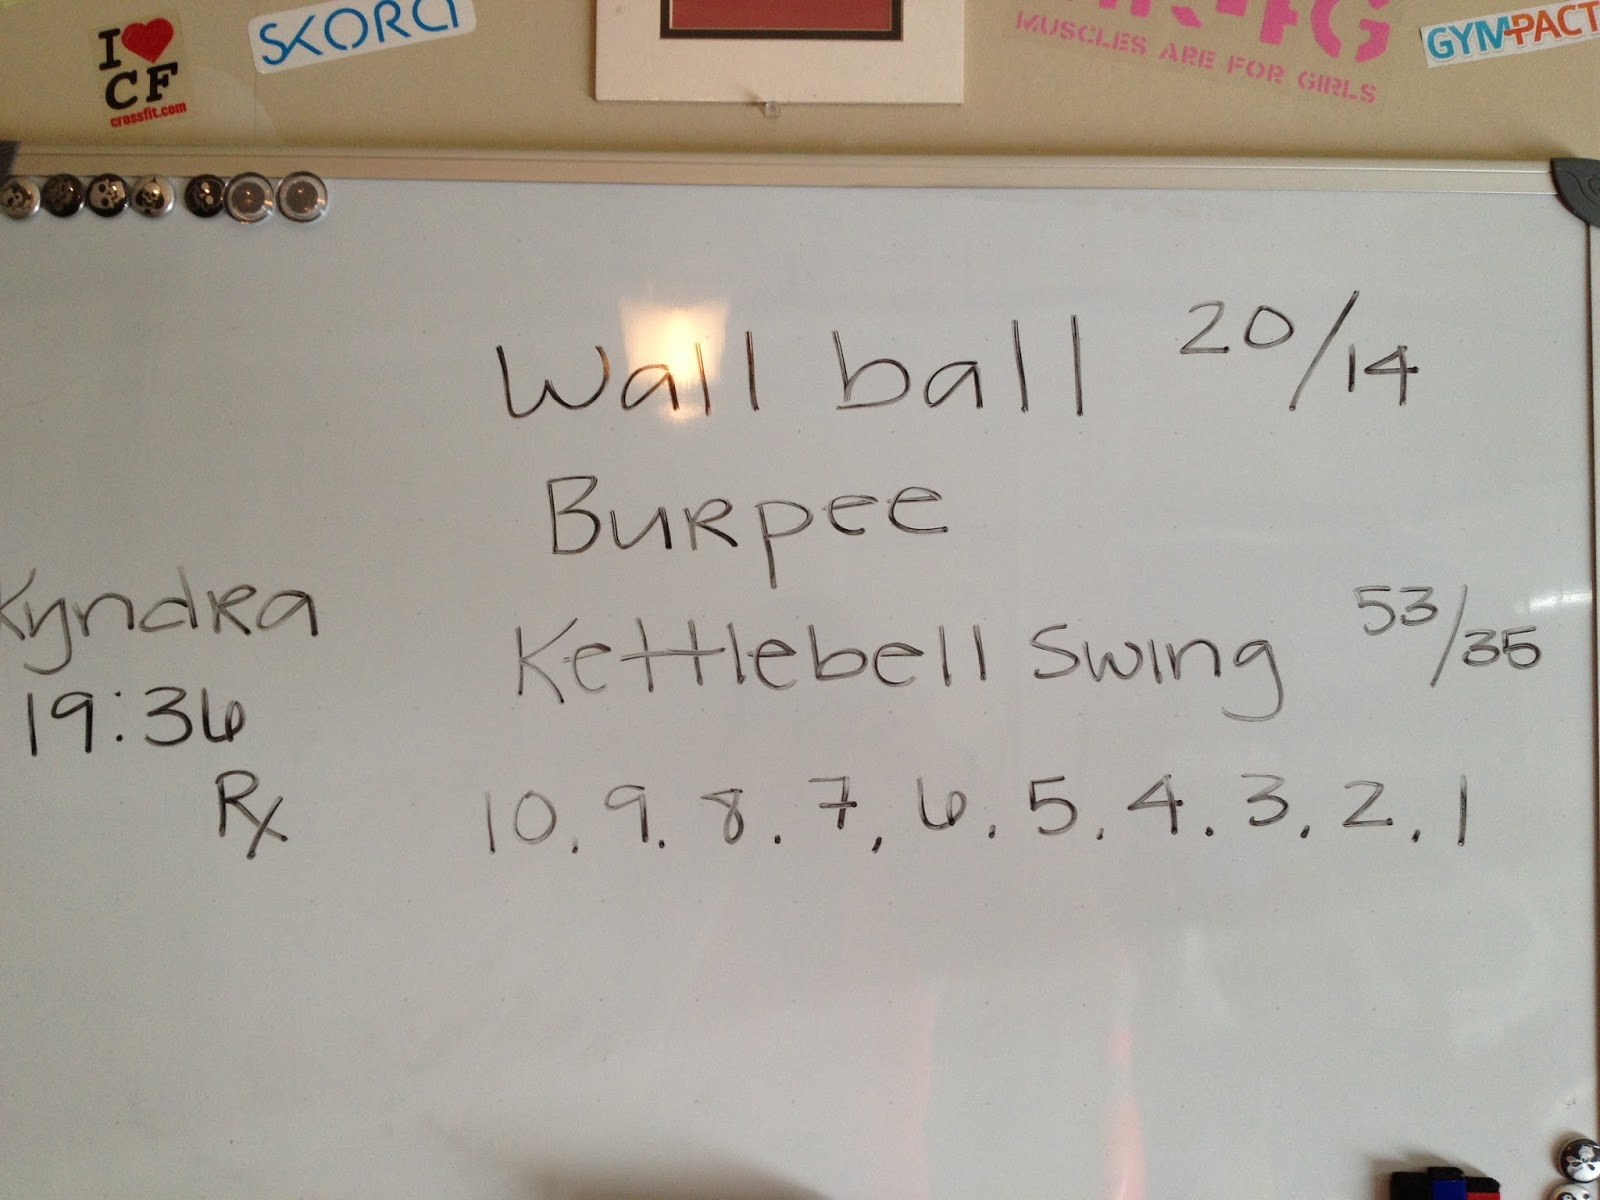 I
CF
crossfit.com
SKORA
MUSCLES ARE FOR GIRLS
GYMPACT
Wall ball 20/14
Burpee
Kettlebell Swing 53/35
Kyndra
19:36
Rx
10, 9, 8, 7, 6, 5, 4, 3, 2, 1